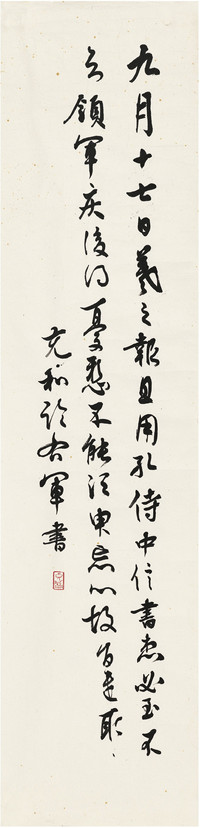 九月十七日羲之報且用孔侍中信書想必至不
知領軍疾後問憂懸不能須臾忘心故旨遣取
充和臨右軍書